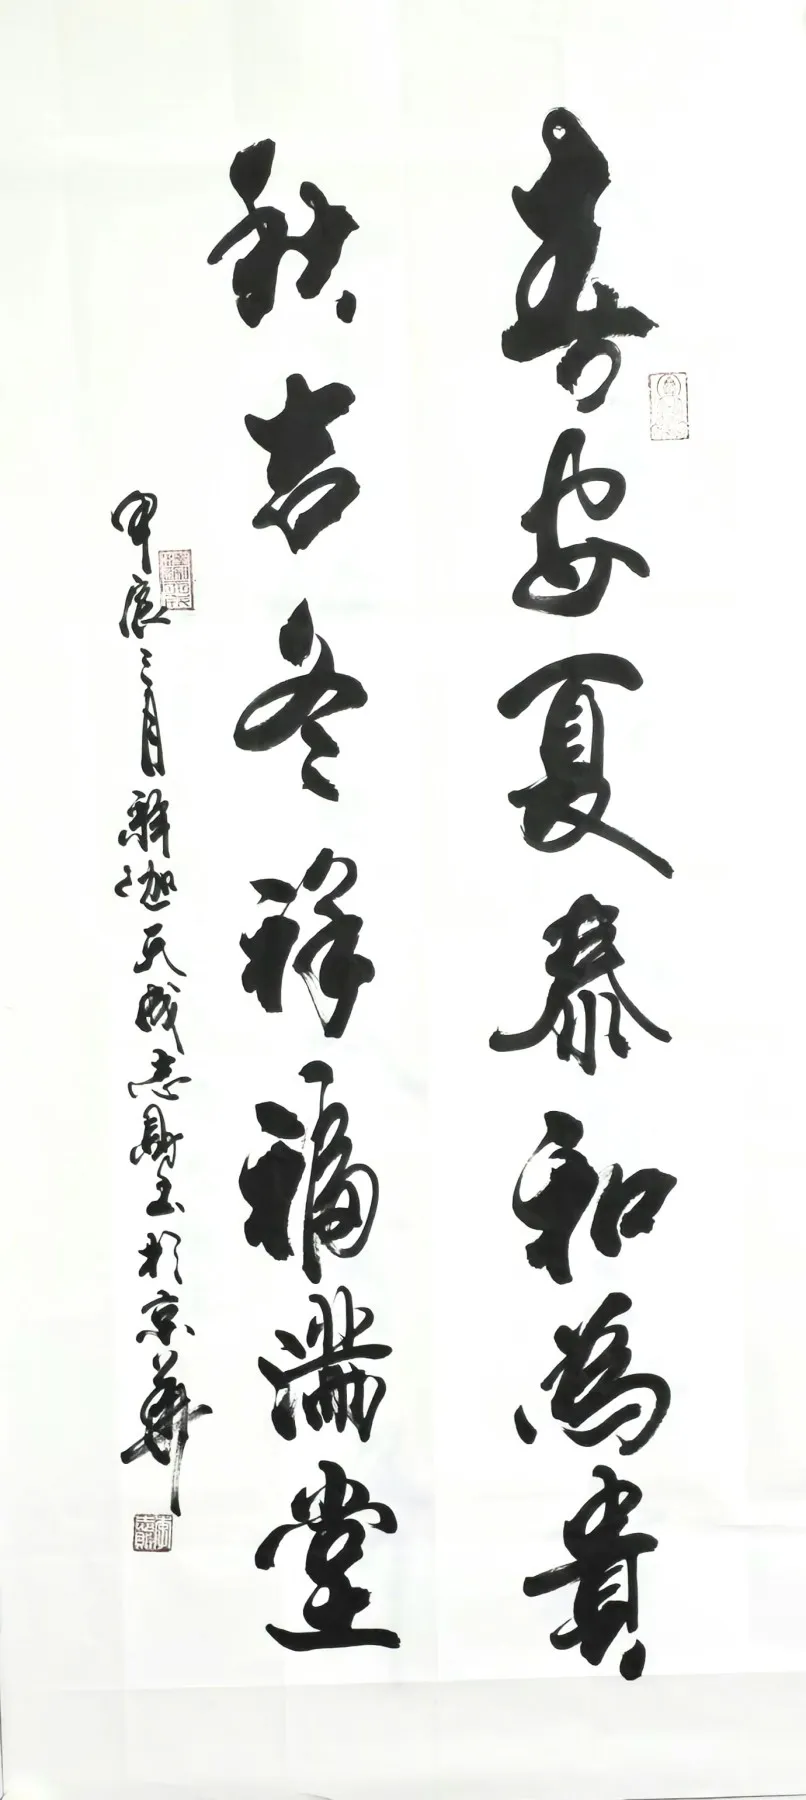 春安夏泰和為貴
秋吉冬祥福滿堂
甲辰三月釋迦天成志財书於京華